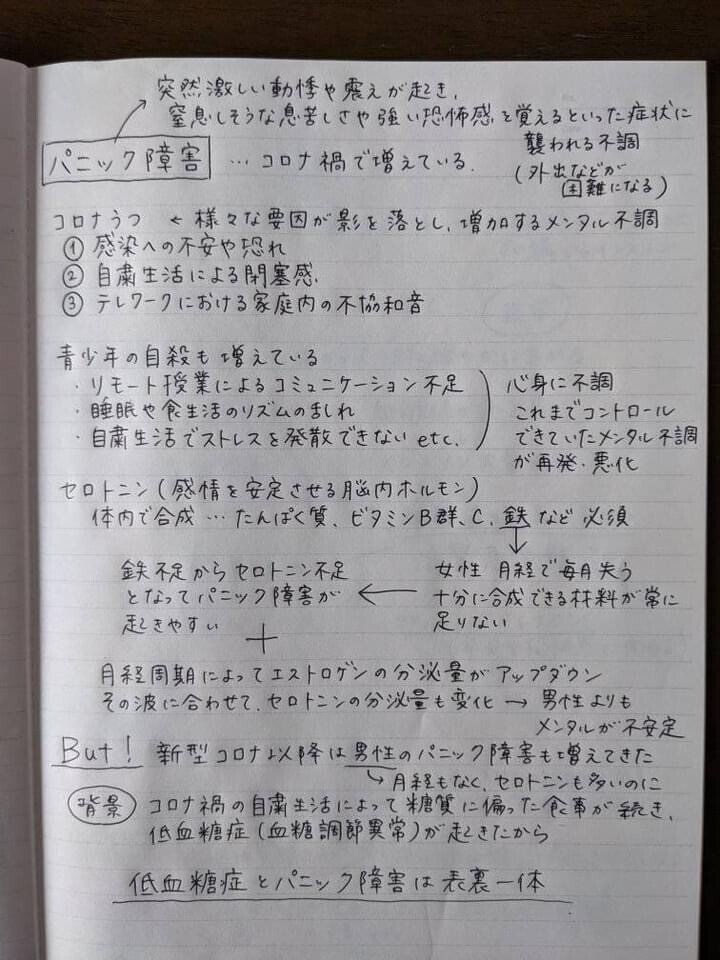 突然激しい動悸や震えが起き、
窒息しそうな息苦しさや強い恐怖感を覚えるといった症状に
襲われる不調
(外出などが
困難になる)
パニック障害 … コロナ禍で増えている.
コロナうつ ← 様々な要因が影を落とし、増加するメンタル不調
① 感染への不安や恐れ
② 自粛生活による閉塞感
③ テレワークにおける家庭内の不協和音
青少年の自殺も増えている
・リモート授業によるコミュニケーション不足
・睡眠や食生活のリズムの乱れ
・自粛生活でストレスを発散できない etc.
心身に不調
これまでコントロール
できていたメンタル不調
が再発・悪化
セロトニン(感情を安定させる脳内ホルモン)
体内で合成 … たんぱく質、ビタミンB群、C、鉄など必須
女性 月経で毎月失う
十分に合成できる材料が常に
足りない
鉄不足からセロトニン不足
となってパニック障害が
起きやすい
+
月経周期によってエストロゲンの分泌量がアップダウン
その波に合わせて、セロトニンの分泌量も変化 → 男性よりも
メンタルが不安定
But! 新型コロナ以降は男性のパニック障害も増えてきた
↳月経もなく、セロトニンも多いのに
背景 コロナ禍の自粛生活によって糖質に偏った食事が続き、
低血糖症(血糖調節異常)が起きたから
低血糖症とパニック障害は表裏一体